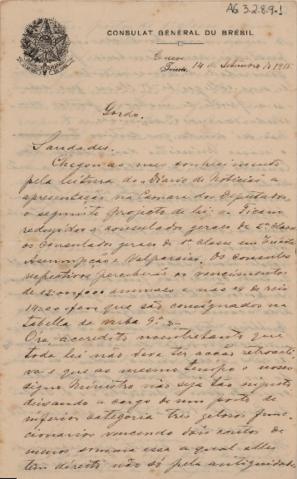 AG 3.2.8.9-1
CONSULAT GÉNÉRAL DU BRÉSIL
Trieste, 14 de Setembro de 19
Gordo.
Saudades.
Chegou ao meu conhecimento
pela leitura do "Diario de Noticias" a
apresentação na Camara dos Deputados
o seguinte projecto de lei: "Ficam
reduzidos a consulados geraes de 2ª classe
os Consulados geraes de 1ª classe em Trieste
Assumpção e Valparaiso. Os consules
respectivos perceberão os vencimentos
de annuaes e de reis
que são consignados na
tabella da verba 9ª
Ora, acredito que
toda lei não deve ter acção retroacti-
va e que ao mesmo tempo o nosso
digno Ministro não seja tão injusto
deixando a cargo de um posto de
inferior categoria tres func-
cionarios vencendo dois contos de
menos somma essa a qual elles
tem direito não só pela antiguidade